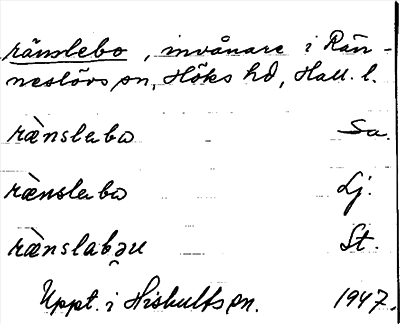 ränslebo, invånare i Rän-
neslövs sn, Höks hd, Hall. l.
rænslabo Sa.
rænslabo Lj.
rænslabəu St.
Uppt. i Hishults sn. 1947.